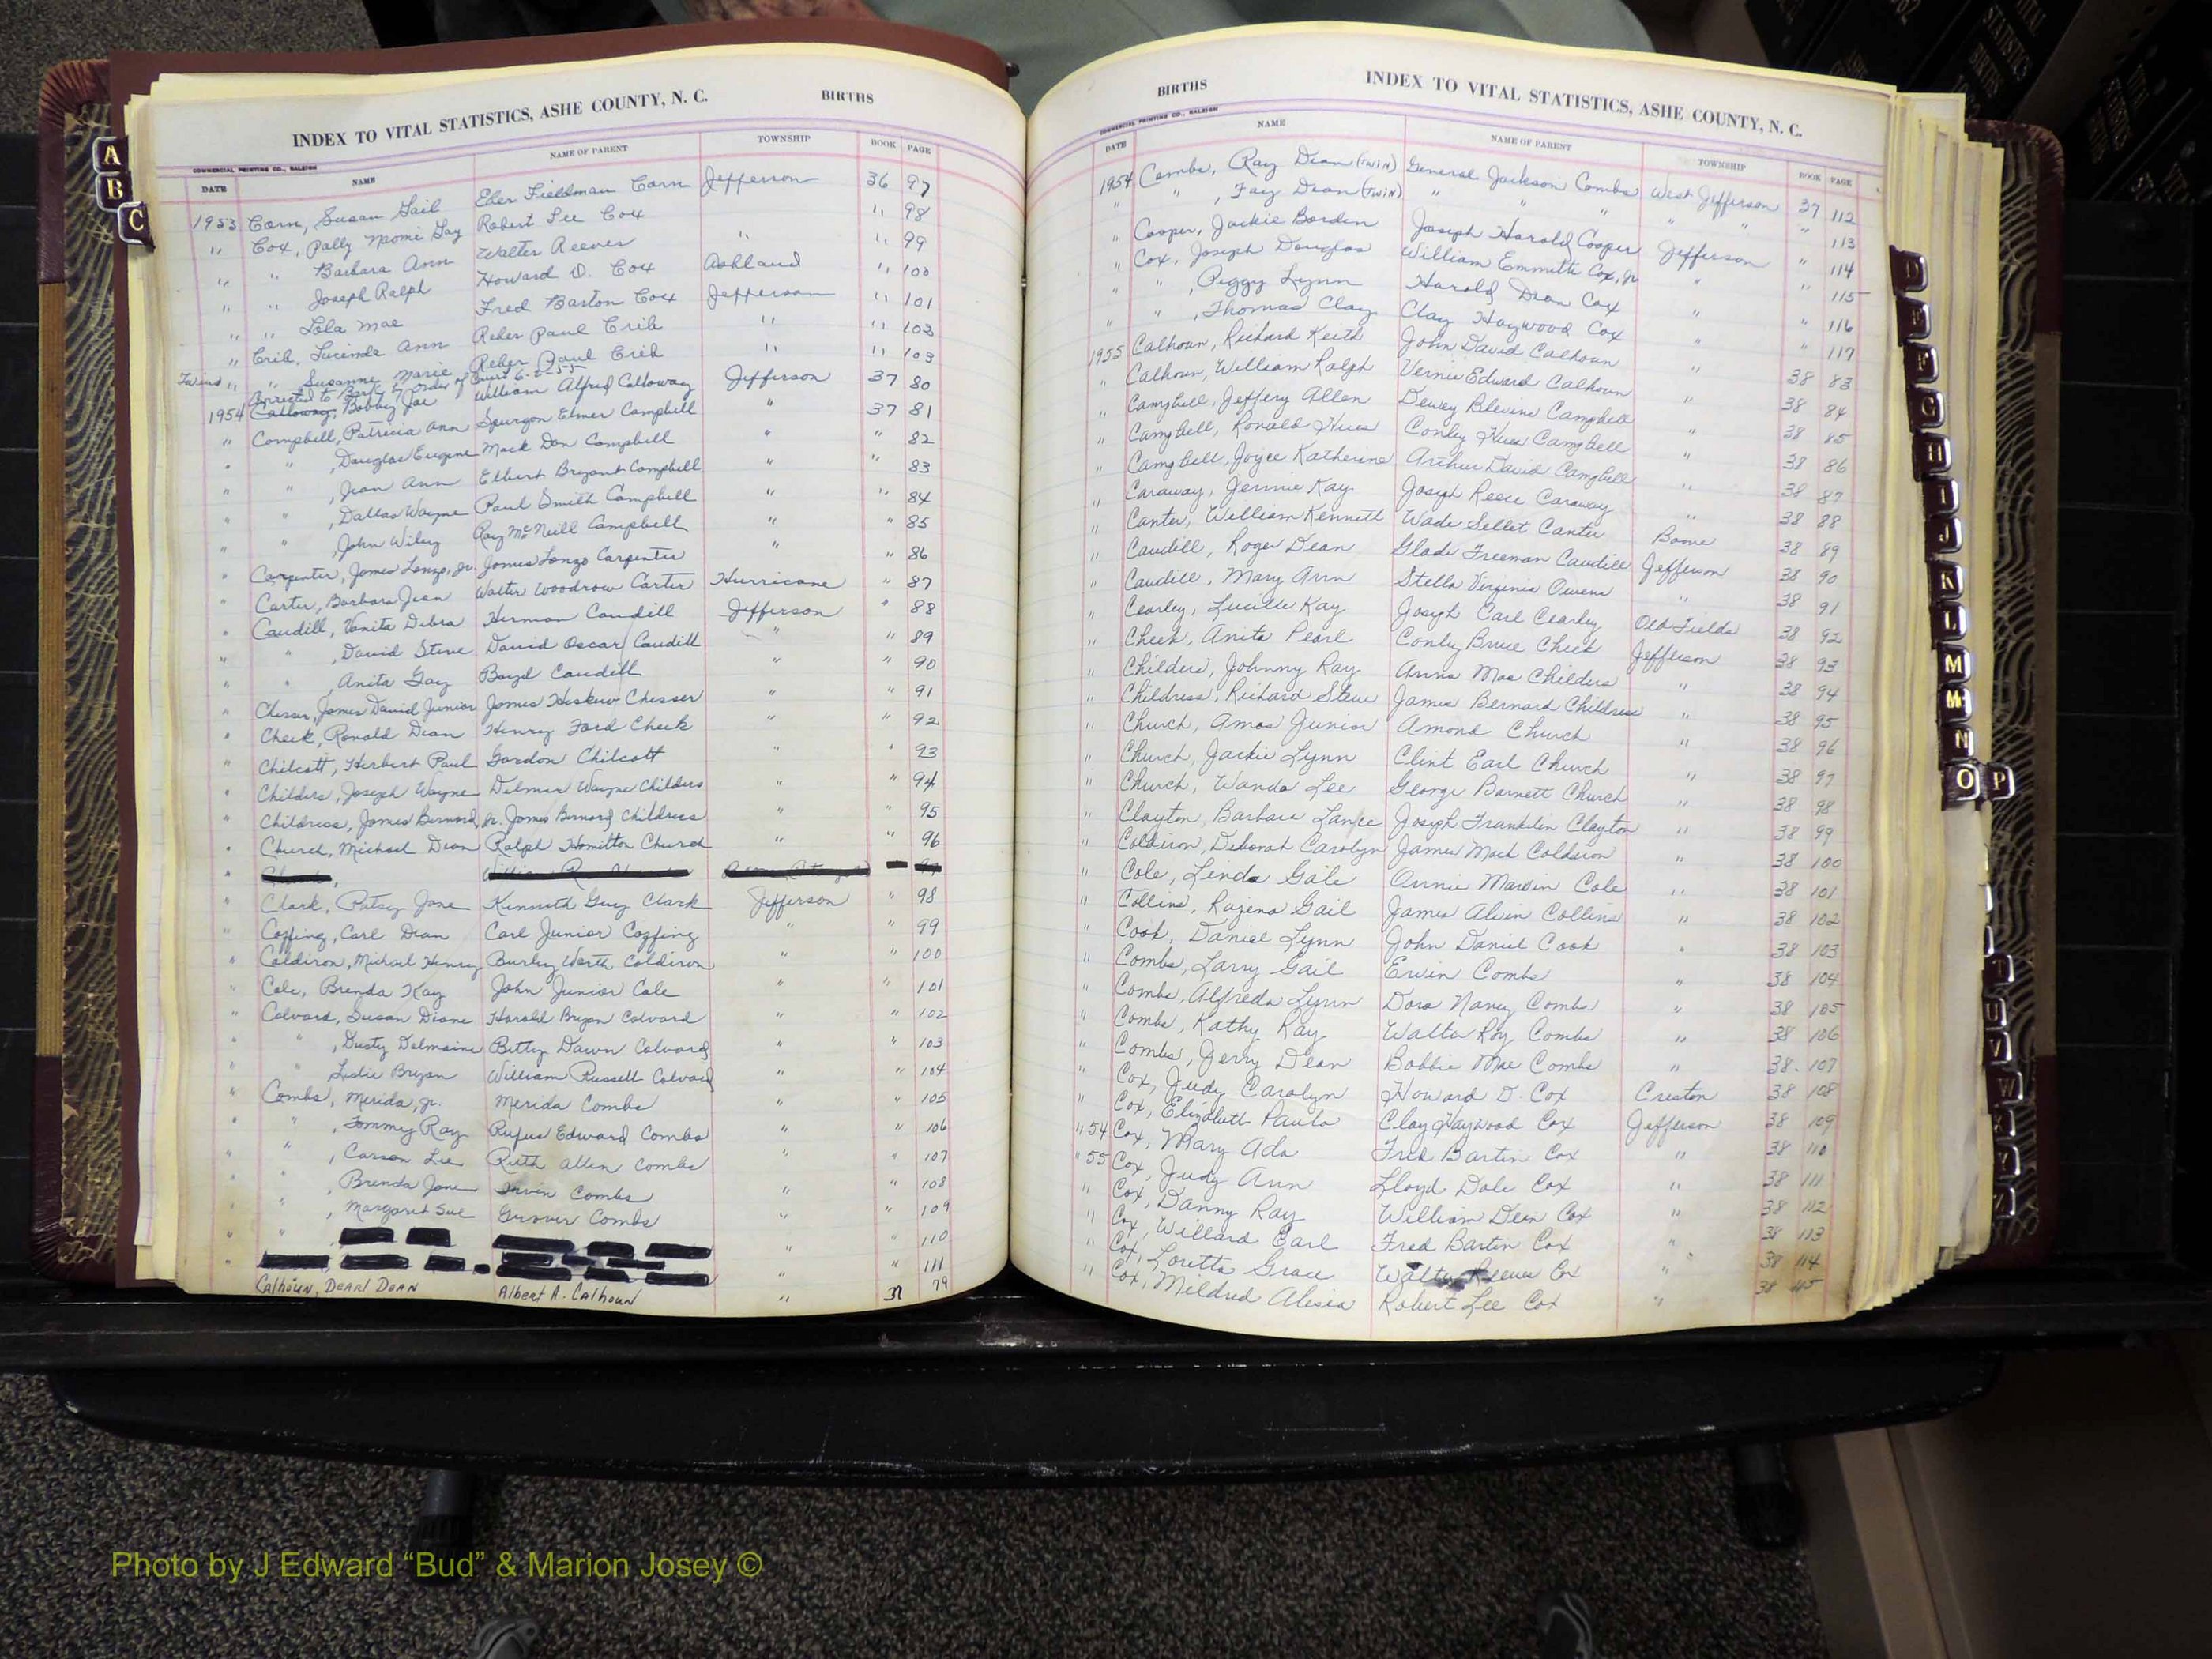 INDEX TO VITAL STATISTICS, ASHE COUNTY, N. C. BIRTHS
COMMERCIAL PRINTING CO., RALEIGH
DATE NAME NAME OF PARENT TOWNSHIP BOOK PAGE
1953 Corn, Susan Gail Eber Fieldman Corn Jefferson 36 97
" Cox, Polly Naomi Gay Robert Lee Cox " " 98
" " Barbara Ann Walter Reeves " 99
" " Joseph Ralph Howard D. Cox Ashland " 100
" " Lola Mae Fred Barton Cox Jefferson " 101
" Crib, Lucinda Ann Reber Paul Crib " " 102
Twins " " Susanne Marie Reber Paul Crib " " 103
Corrected to Barty by order of Court 6-2-55
1954 Calloway, Bobby Joe William Alfred Calloway Jefferson 37 80
" Campbell, Patricia Ann Spurgon Elmer Campbell " 37 81
" " , Douglas Eugene Mack Don Campbell " " 82
" " , Jean Ann Elbert Bryant Campbell " " 83
" " , Dallas Wayne Paul Smith Campbell " " 84
" " , John Wiley Ray McNeill Campbell " " 85
" Carpenter, James Lonzo, Jr. James Lonzo Carpenter " " 86
" Carter, Barbara Jean Walter Woodrow Carter Hurricane " 87
" Caudill, Vanita Debra Herman Caudill Jefferson " 88
" " , David Steve David Oscar Caudill " " 89
" " , Anita Gay Boyd Caudill " " 90
" Chesser, James David Junior James Heskew Chesser " " 91
" Cheek, Ronald Dean Henry Ford Cheek " " 92
" Chilcott, Herbert Paul Gordon Chilcott " " 93
" Childers, Joseph Wayne Delmer Wayne Childers " " 94
" Childress, James Bernard, Jr. James Bernard Childress " " 95
" Church, Michael Dean Ralph Hamilton Church " " 96
" Clark, Patsy Jane Kenneth Guy Clark Jefferson " 98
" Coffing, Carl Dean Carl Junior Coffing " " 99
" Coldiron, Michael Henry Burley Worth Coldiron " " 100
" Cole, Brenda Kay John Junior Cole " " 101
" Colvard, Susan Diane Harold Bryan Colvard " " 102
" " , Dusty Delmaine Betty Dawn Colvard " " 103
" " Leslie Bryan William Russell Colvard " " 104
" Combs, Merida, Jr. Merida Combs " " 105
" " , Tommy Ray Rufus Edward Combs " " 106
" " , Carson Lee Ruth Allen Combs " " 107
" " , Brenda Jane Irvin Combs " " 108
" " , Margaret Sue Grover Combs " " 109
" " , " " 110
" " " 111
Calhoun, Dearl Dean Albert A. Calhoun " 37 79
BIRTHS INDEX TO VITAL STATISTICS, ASHE COUNTY, N. C.
COMMERCIAL PRINTING CO., RALEIGH
DATE NAME NAME OF PARENT TOWNSHIP BOOK PAGE
1954 Combs, Ray Dean (Twin) General Jackson Combs West Jefferson 37 112
" " , Fay Dean (Twin) " " " " " " 113
" Cooper, Jackie Borden Joseph Harold Cooper Jefferson " 114
" Cox, Joseph Douglas William Emmitte Cox, Jr " " 115
" " , Peggy Lynn Harold Dean Cox " " 116
" " , Thomas Clay Clay Haywood Cox " " 117
1955 Calhoun, Richard Keith John David Calhoun " 38 83
" Calhoun, William Ralph Vernie Edward Calhoun " 38 84
" Campbell, Jeffery Allen Dewey Blevins Campbell " 38 85
" Campbell, Ronald Hues Conley Hues Campbell " 38 86
" Campbell, Joyce Katherine Arthur David Campbell " 38 87
" Caraway, Jennie Kay Joseph Reece Caraway " 38 88
" Canter, William Kenneth Wade Sellet Canter Boone 38 89
" Caudill, Roger Dean Glade Freeman Caudill Jefferson 38 90
" Caudill, Mary Ann Stella Virginia Owens " 38 91
" Cearley, Lucille Kay Joseph Earl Cearley Old Fields 38 92
" Cheek, Anita Pearl Conley Bruce Cheek Jefferson 38 93
" Childers, Johnny Ray Anna Mae Childers " 38 94
" Childress, Richard Steve James Bernard Childress " 38 95
" Church, Amos Junior Amond Church " 38 96
" Church, Jackie Lynn Clint Earl Church " 38 97
" Church, Wanda Lee George Barnett Church " 38 98
" Clayton, Barbara Lance Joseph Franklin Clayton " 38 99
" Coldiron, Deborah Carolyn James Mack Coldiron " 38 100
" Cole, Linda Gale Annie Marvin Cole " 38 101
" Collins, Rajena Gail James Alvin Collins " 38 102
" Cook, Daniel Lynn John Daniel Cook " 38 103
" Combs, Larry Gail Ervin Combs " 38 104
" Combs, Alfreda Lynn Dora Nancy Combs " 38 105
" Combs, Kathy Ray Walter Roy Combs " 38 106
" Combs, Jerry Dean Bobbie Mae Combs " 38 107
" Cox, Judy Carolyn Howard D. Cox Creston 38 108
" Cox, Elizabeth Paula Clay Haywood Cox Jefferson 38 109
" 54 Cox, Mary Ada Fred Bartin Cox " 38 110
" 55 Cox, Judy Ann Lloyd Dale Cox " 38 111
" Cox, Danny Ray William Dean Cox " 38 112
" Cox, Willard Earl Fred Bartin Cox " 38 113
" Cox, Loretta Grace Walter Reeves Cox " 38 114
" Cox, Mildred Alesia Robert Lee Cox " 38 115
A
B
C
D
E
F
G
H
I
J
K
L
M
Mc
N
O P
T
U
V
W
X
Y
Z
VITAL STATISTICS BIRTHS
Photo by J Edward “Bud” & Marion Josey ©